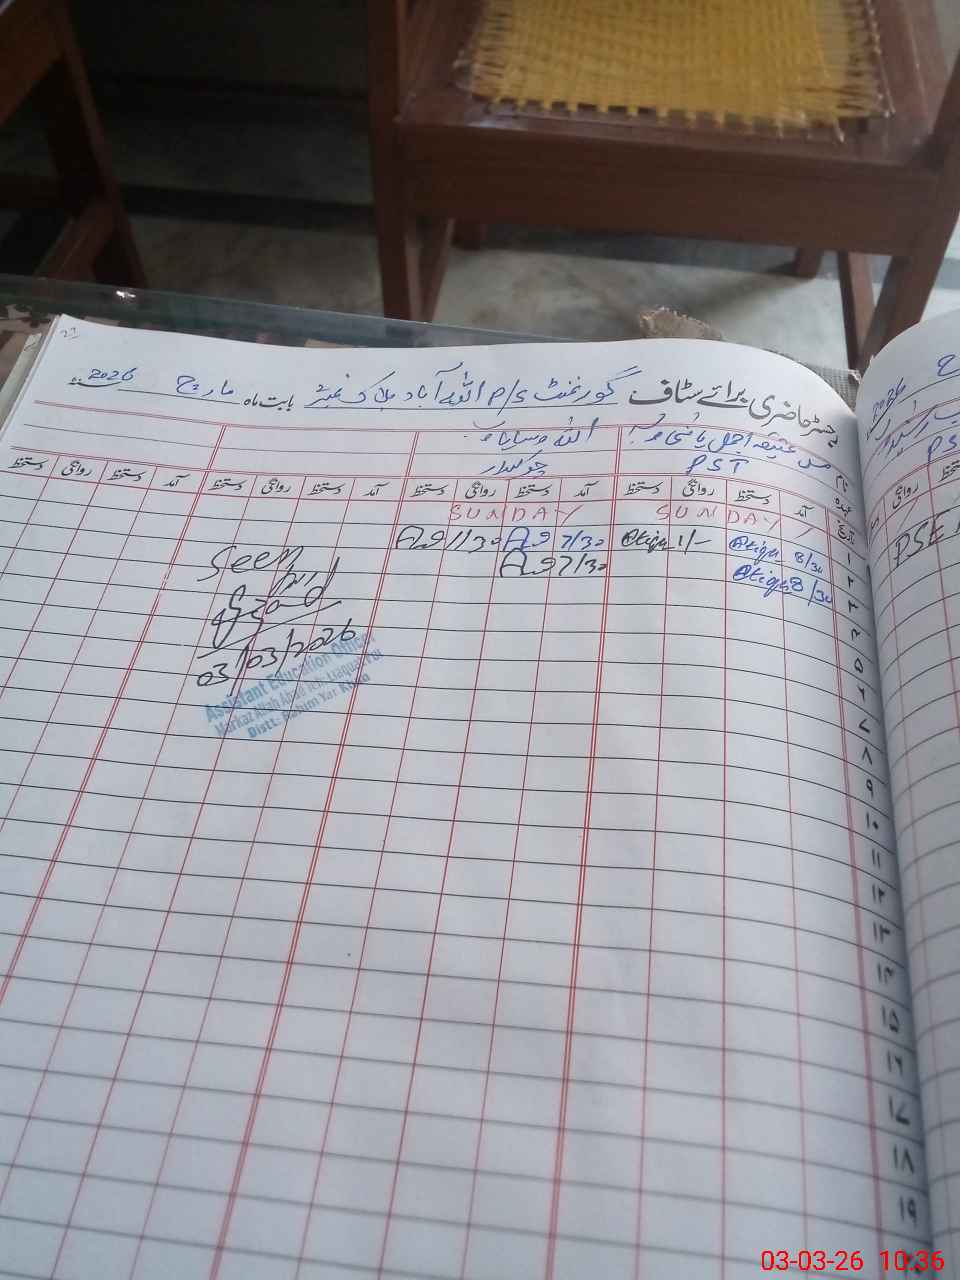 رجسٹر حاضری برائے سٹاف گورنمنٹ P/S اللہ آباد بلاک نمبر بابت ماہ مارچ 2026
نام مس عتیقہ اللہ وسایا
عہدہ PST چوکیدار
تاریخ آمد دستخط روانگی دستخط آمد دستخط روانگی دستخط آمد دستخط روانگی دستخط آمد دستخط روانگی دستخط
۱ SUNDAY SUNDAY
۲ 8/30 Atiqa 1/- Atiqa 7/30 11/30
۳ 8/30 Atiqa 7/30
۴
۵
۶
۷
۸
۹
۱۰
۱۱
۱۲
۱۳
۱۴
۱۵
۱۶
۱۷
۱۸
۱۹
Seen
03/03/2026
Assistant Education Officer
Markaz Allah Abad Teh: Liaquat Pur
Distt: Rahim Yar Khan
2026
PST
روانگی
دستخط
PSE
03-03-26 10:36